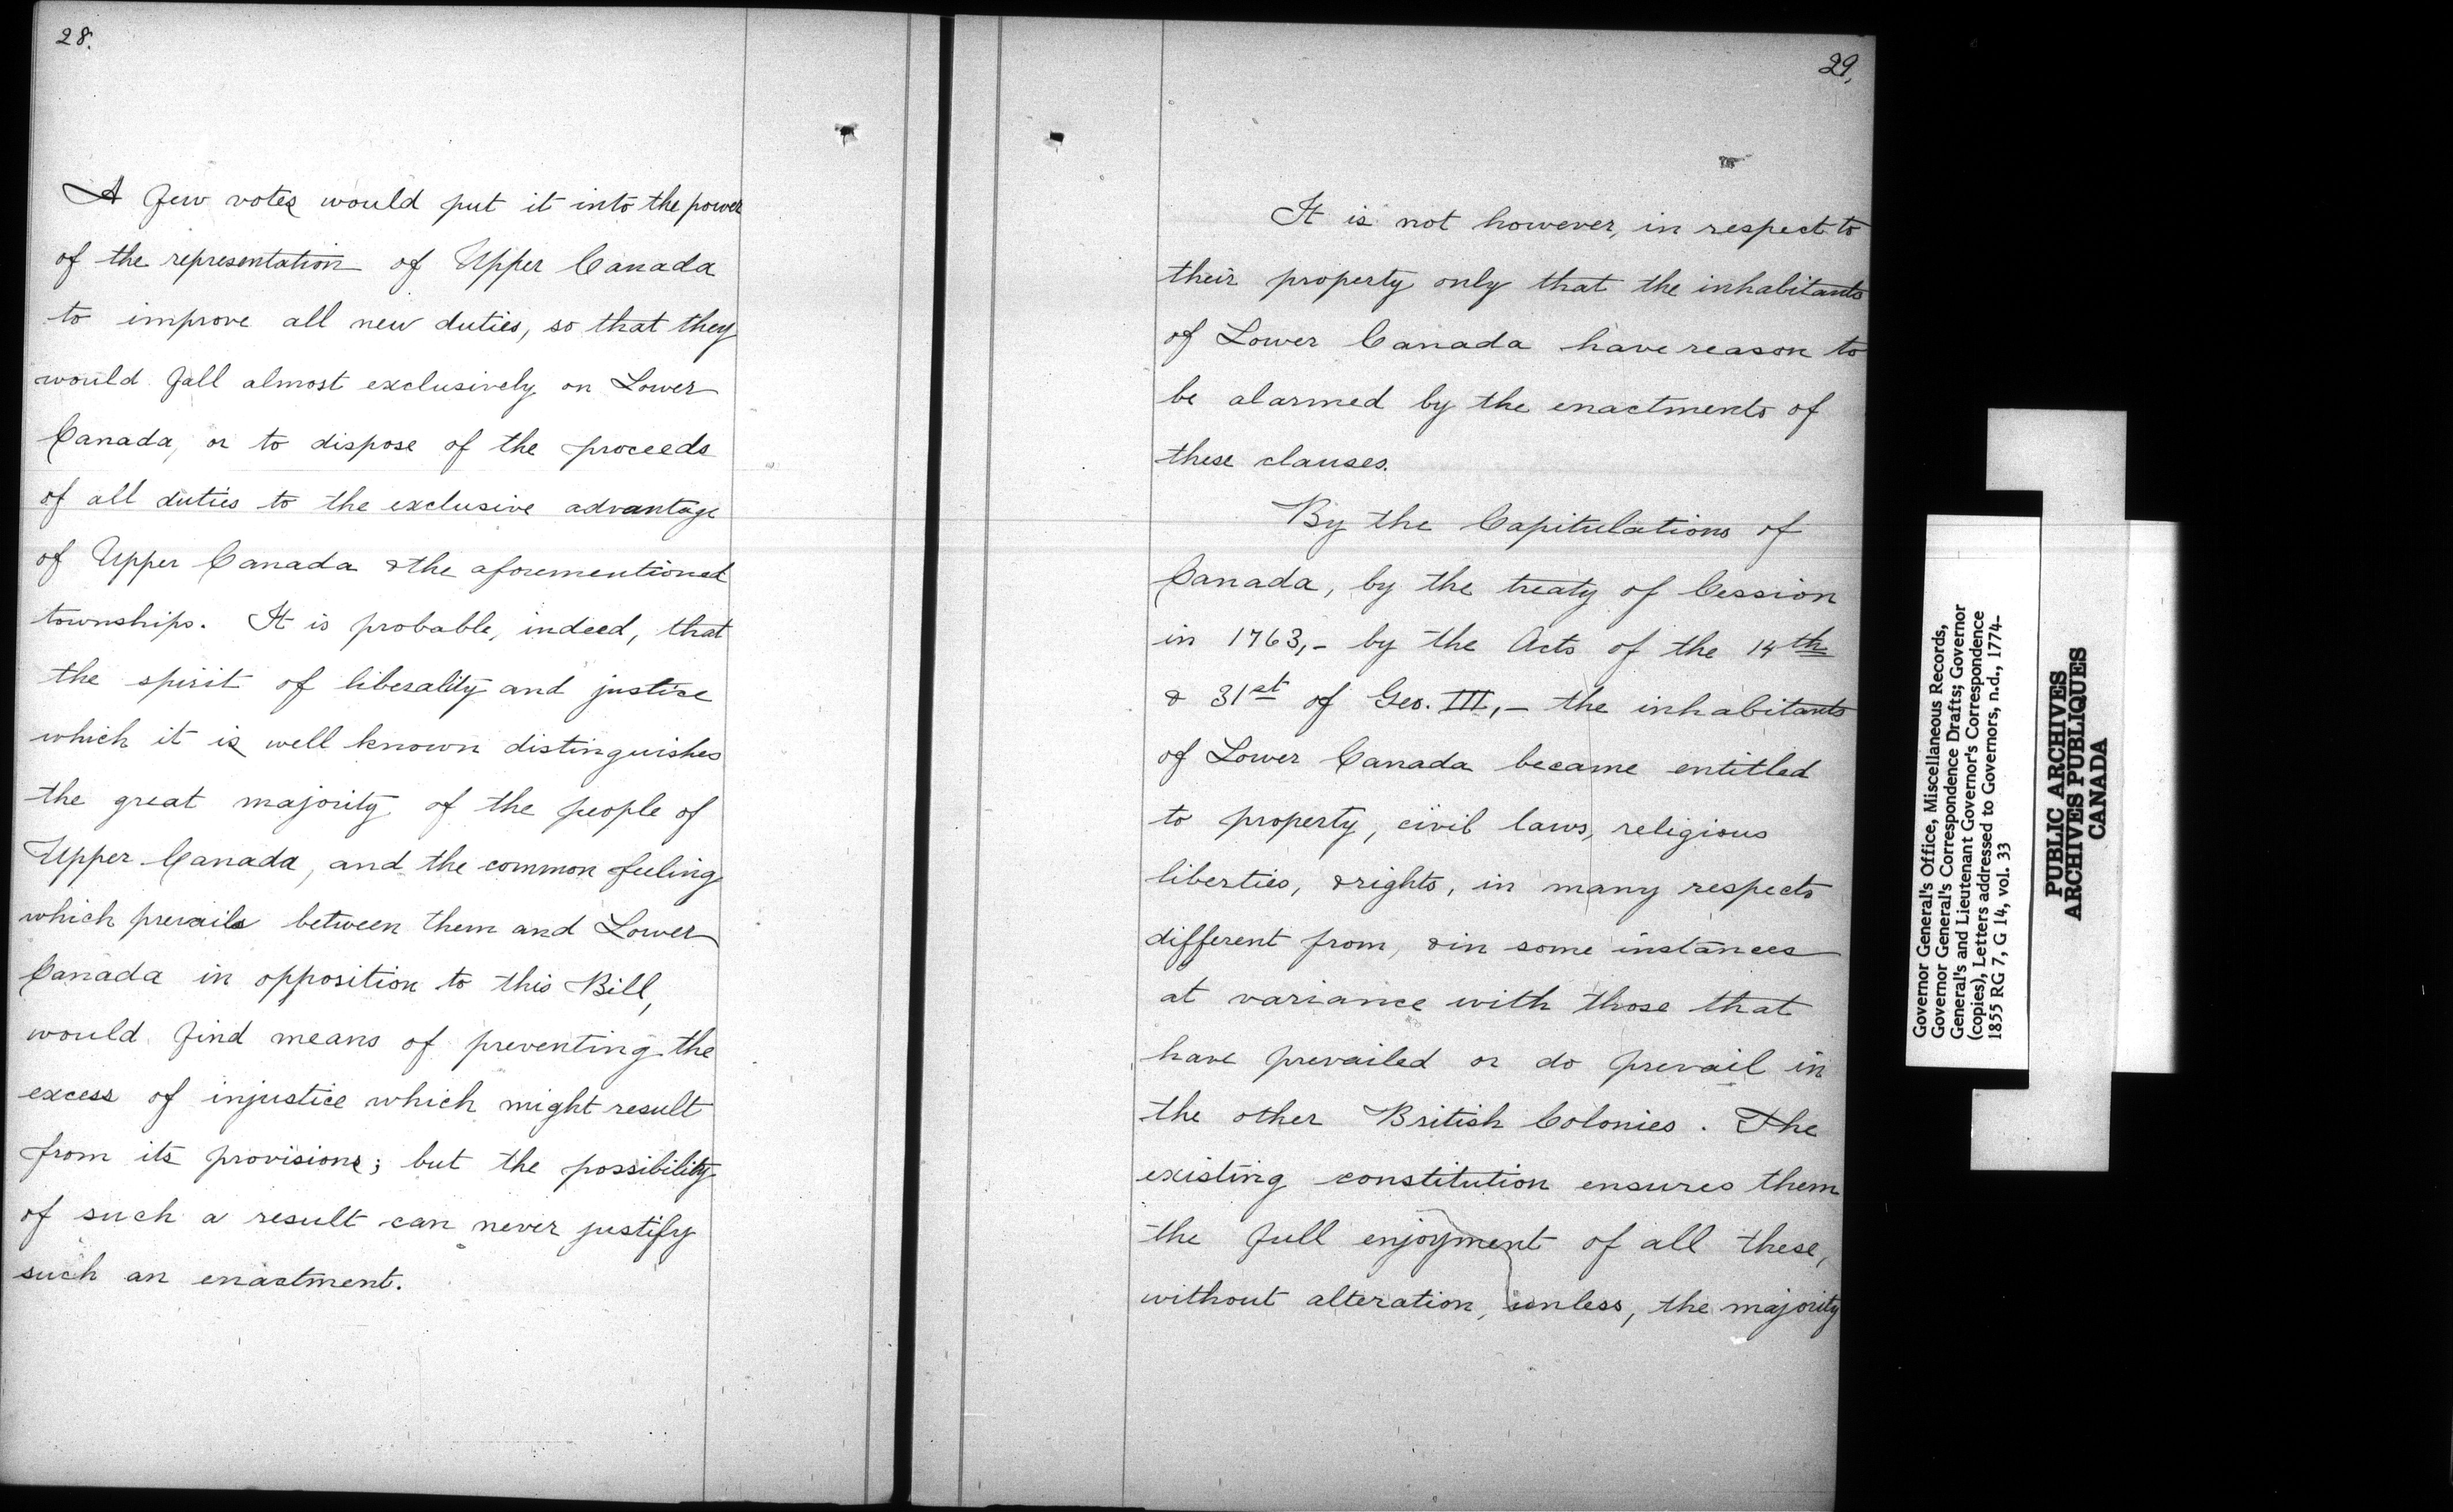 28.
A few votes would put it into the power
of the representation of Upper Canada
to improve all new duties, so that they
would fall almost exclusively on Lower
Canada, or to dispose of the proceeds
of all duties to the exclusive advantage
of Upper Canada & the aforementioned
townships. It is probable, indeed, that
the spirit of liberality and justice
which it is well known distinguishes
the great majority of the people of
Upper Canada, and the common feeling
which prevails between them and Lower
Canada in opposition to this Bill,
would find means of preventing the
excess of injustice which might result
from its provisions; but the possibility
of such a result can never justify
such an enactment.
29.
It is not however, in respect to
their property only that the inhabitants
of Lower Canada have reason to
be alarmed by the enactments of
these clauses.
By the Capitulations of
Canada, by the treaty of Cession
in 1763,- by the Acts of the 14th
& 31st of Geo. III,- the inhabitants
of Lower Canada became entitled
to property, civil laws, religious
liberties, & rights, in many respects
different from, & in some instances
at variance with those that
have prevailed or do prevail in
the other British Colonies. The
existing constitution ensures them
the full enjoyment of all these,
without alteration, unless, the majority
Governor General's Office, Miscellaneous Records,
Governor General's Correspondence Drafts; Governor
General's and Lieutenant Governor's Correspondence
(copies), Letters addressed to Governors, n.d., 1774-
1855 RG 7, G 14, vol. 33
PUBLIC ARCHIVES
ARCHIVES PUBLIQUES
CANADA